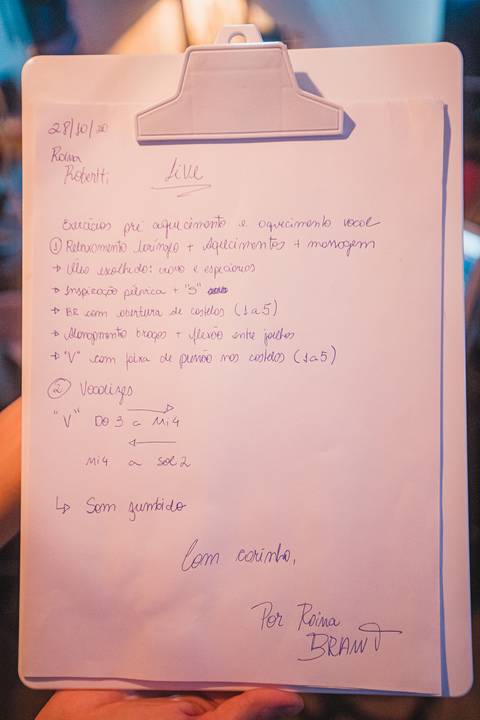 28/10/20
Raina
Robertti
Live
Exercícios pré aquecimento e aquecimento vocal
① Relaxamento laringe + Aquecimentos + massagem
→ Óleo escolhido: cravo e especiarias
→ Inspiração pélvica + "S"
→ BR com abertura de costelas (1 a 5)
→ Alongamento braços + flexão entre joelhos
→ "V" com faixa de pressão nas costelas (1 a 5)
② Vocalizes
"V" Dó 3 a Mi4
Mi4 a Sol 2
↳ Som zumbido
Com carinho,
Por Raina
BRANT